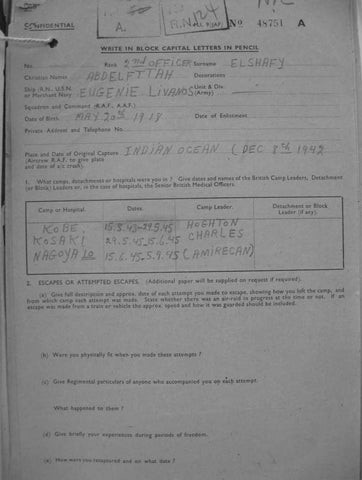 CONFIDENTIAL
A.
R.N.
124
No 48751 A
WRITE IN BLOCK CAPITAL LETTERS IN PENCIL
No. Rank 2ND OFFICER Surname ELSHAFY
Christian Names ABDELFTTAH Decorations
Ship (R.N., U.S.N. or Merchant Navy) EUGENIE LIVANOS Unit & Div. (Army)
Squadron and Command (R.A.F., A.A.F.)
Date of Birth MAY 20th 1918 Date of Enlistment
Private Address and Telephone No.
Place and Date of Original Capture INDIAN OCEAN (DEC 8th 1942
(Airscrew R.A.F. to give place
and date of a/c crash).
1. What camps, detachments or hospitals were you in? Give dates and names of the British Camp Leaders, Detachment
(or Block) Leaders or, in the case of hospitals, the Senior British Medical Officers.
Camp or Hospital. Dates. Camp Leader. Detachment or Block Leader (if any).
KOBE 15.5.43-29.5.45 HOGHTON
KOSAKI 29.5.45 15.6.45 CHARLES
NAGOYA 10 15.6.45 5.9.45 (AMIRECAN)
2. ESCAPES OR ATTEMPTED ESCAPES. (Additional paper will be supplied on request if required).
(a) Give full description and approx. date of each attempt you made to escape, showing how you left the camp, and
from which camp each attempt was made. State whether there was an air-raid in progress at the time or not. If an
escape was made from a train or vehicle the approx. speed and how it was guarded should be included.
(b) Were you physically fit when you made these attempts?
(c) Give Regimental particulars of anyone who accompanied you on each attempt.
What happened to them?
(d) Give briefly your experiences during periods of freedom.
(e) How were you recaptured and on what date?